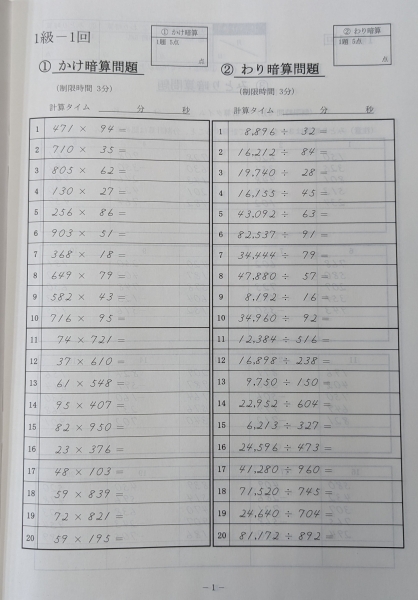 1級－1回
① かけ暗算
1題 5点
点
② わり暗算
1題 5点
点
① かけ暗算問題
(制限時間 3分)
計算タイム 分 秒
1 471 × 94 =
2 710 × 35 =
3 805 × 62 =
4 130 × 27 =
5 256 × 86 =
6 903 × 51 =
7 368 × 18 =
8 649 × 79 =
9 582 × 43 =
10 716 × 95 =
11 74 × 721 =
12 37 × 610 =
13 61 × 548 =
14 95 × 407 =
15 82 × 950 =
16 23 × 376 =
17 48 × 103 =
18 59 × 839 =
19 72 × 821 =
20 59 × 195 =
② わり暗算問題
(制限時間 3分)
計算タイム 分 秒
1 8,896 ÷ 32 =
2 16,212 ÷ 84 =
3 19,740 ÷ 28 =
4 16,155 ÷ 45 =
5 43,092 ÷ 63 =
6 82,537 ÷ 91 =
7 34,444 ÷ 79 =
8 47,880 ÷ 57 =
9 8,192 ÷ 16 =
10 34,960 ÷ 92 =
11 12,384 ÷ 516 =
12 16,898 ÷ 238 =
13 9,750 ÷ 150 =
14 22,952 ÷ 604 =
15 6,213 ÷ 327 =
16 24,596 ÷ 473 =
17 41,280 ÷ 960 =
18 71,520 ÷ 745 =
19 24,640 ÷ 704 =
20 81,172 ÷ 892 =
－1－